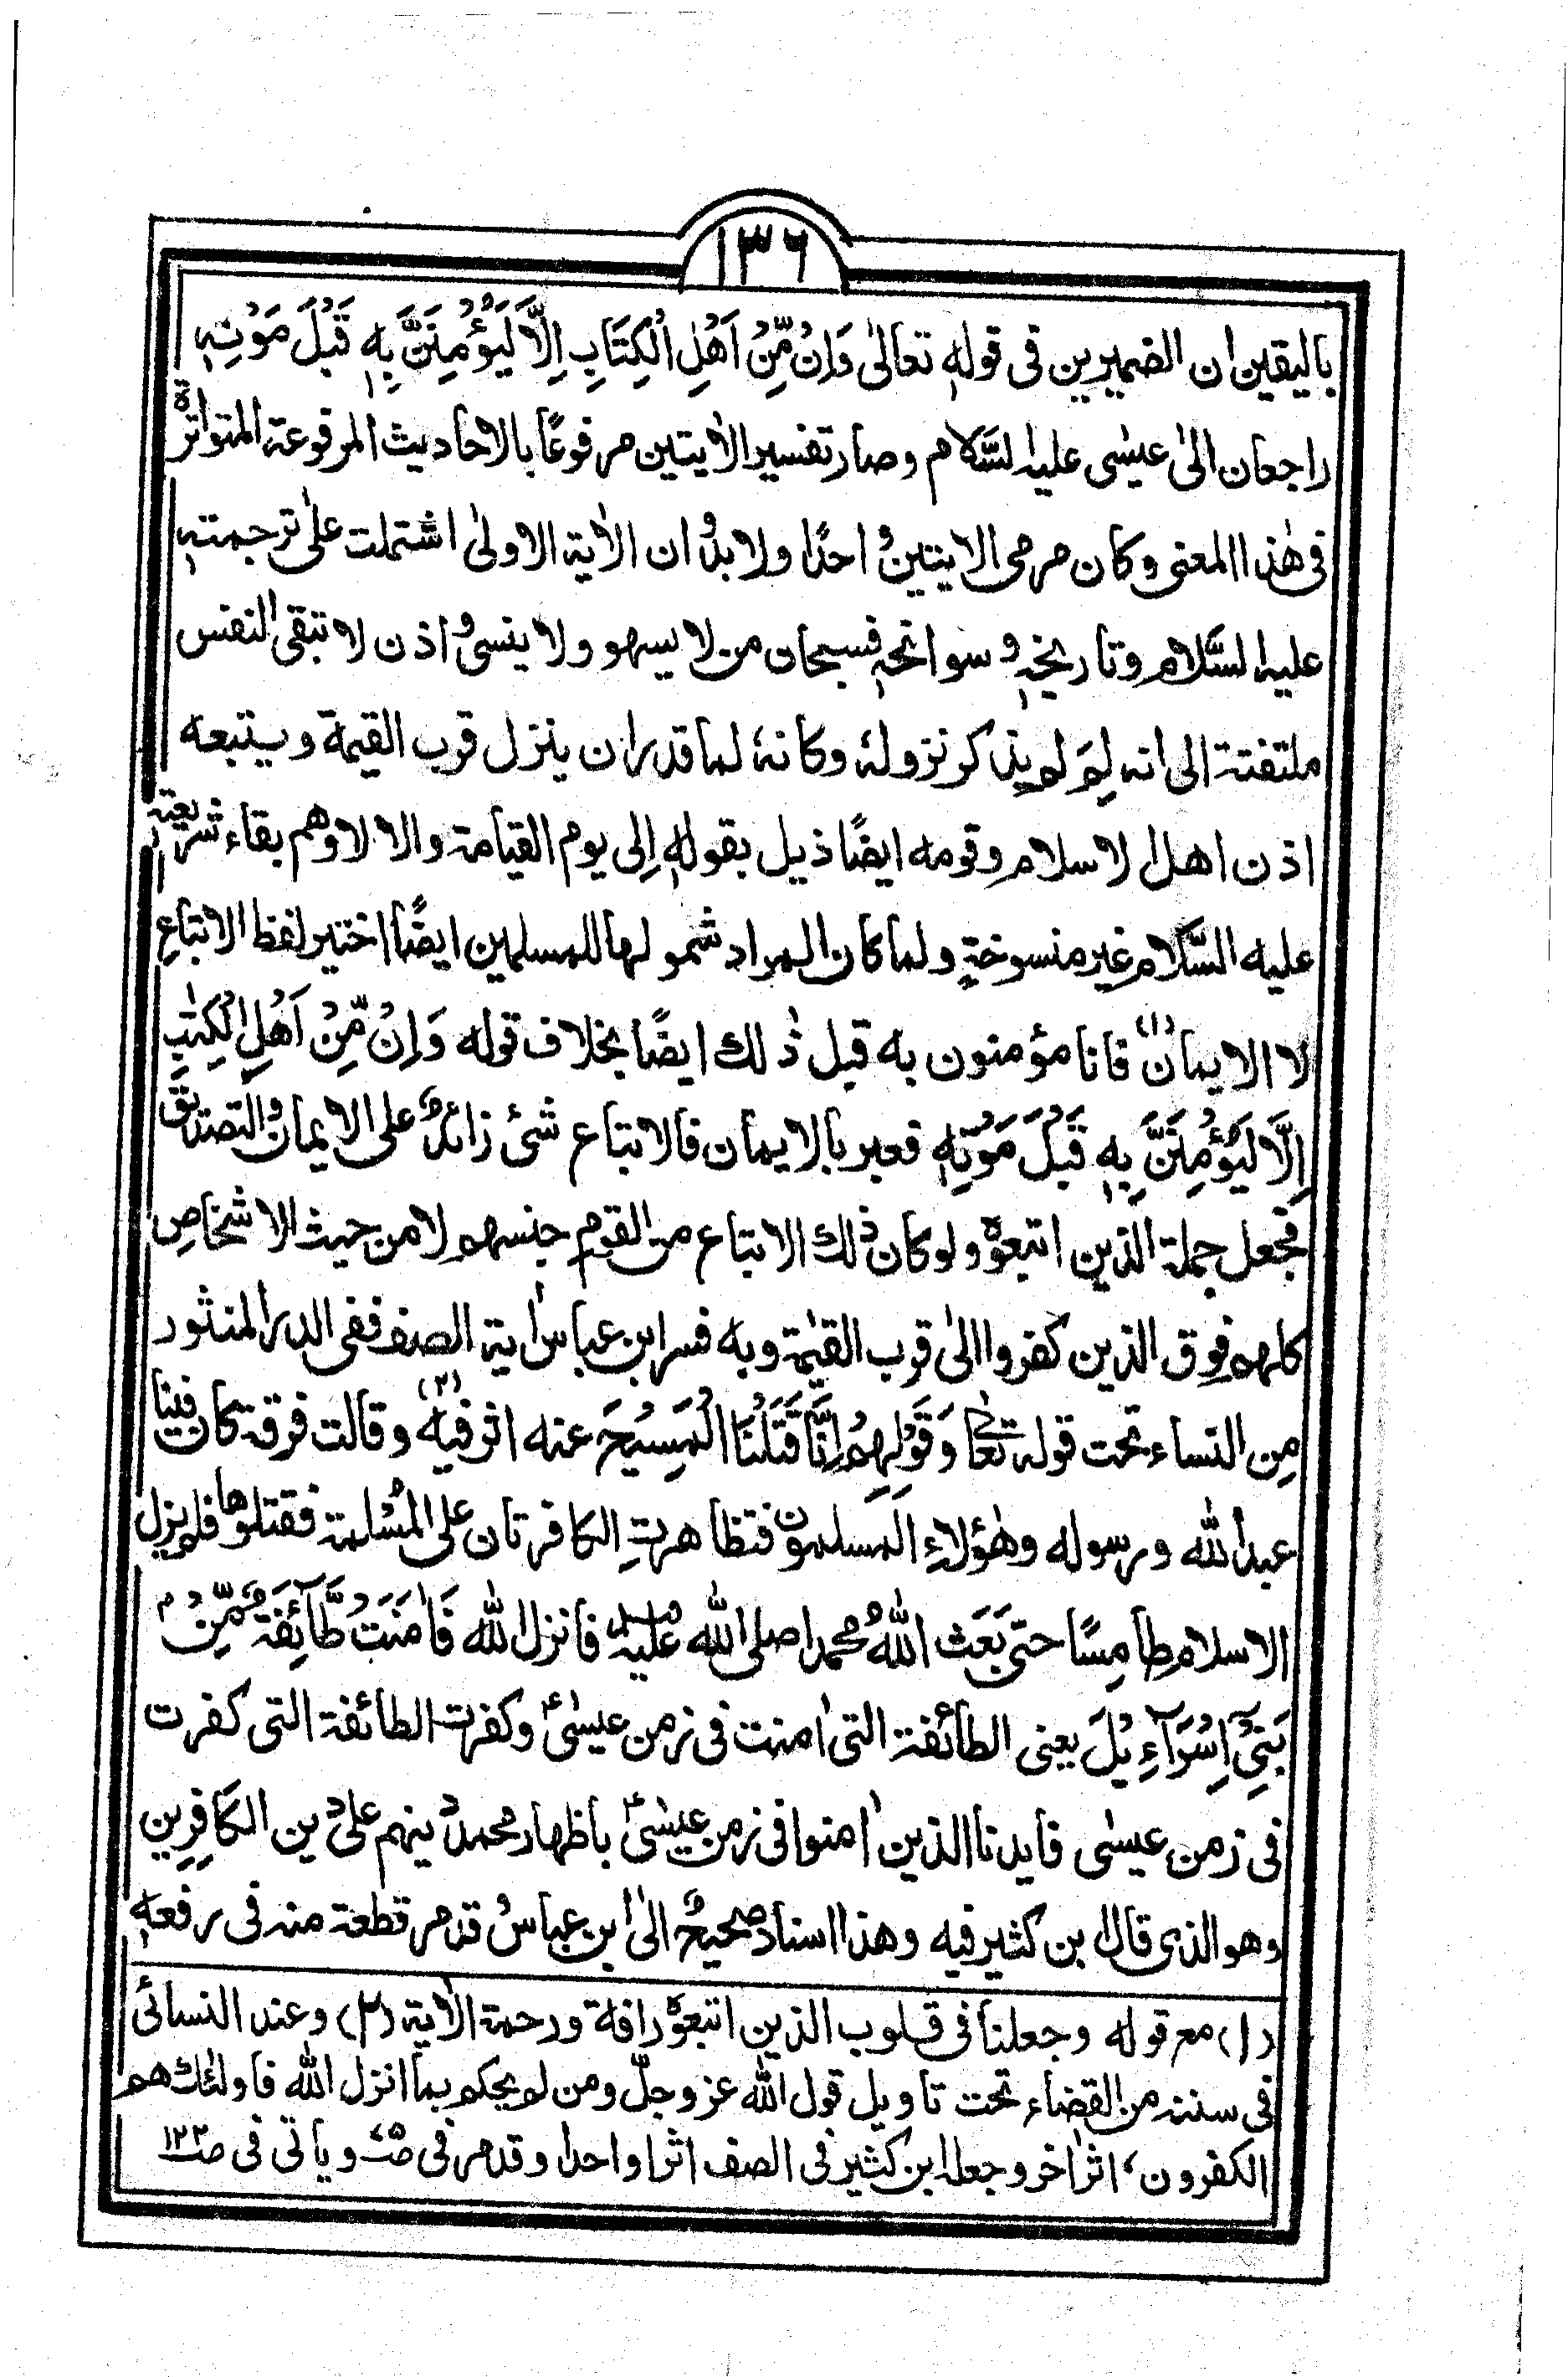 ١٣٦
باليقين ان الضميرين فى قولهٖ تعالىٰ وَاِنْ مِّنْ اَهْلِ الْكِتَابِ اِلَّا لَيُؤْمِنَنَّ بِهٖ قَبْلَ مَوْتِهٖ
راجعان الىٰ عيسٰى عليه السَّلام وصار تفسير الاٰيتين مرفوعًا بالاحاديث المرفوعة المتواترة
فى هٰذا المعنى وكان مرمى الايتين واحدًا ولابدُّ ان الاٰية الاولىٰ اشتملت علىٰ ترجمتهٖ
عليه السَّلام وتاريخهٖ و سوانحهٖ فسبحان من لا يسهو ولا ينسىٰ و اذن لا تبقى النفس
ملتفتة الى انه لِمَ لم يذكر نزولهٗ وكانهٗ لما قدر ان ينزل قرب القيمة ويتبعه
اذن اهل الاسلام وقومه ايضًا ذيل بقولهٖ اِلى يوم القيامة والا لاوهم بقاء شريعتهٖ
عليه السَّلام غير منسوخةٍ ولما كان المراد شمولها للمسلمين ايضًا اختير لفظ الاتباعِ
لا الايمان (١) فانا مؤمنون به قبل ذٰلك ايضًا بخلاف قوله وَاِنْ مِّنْ اَهْلِ الْكِتٰبِ
اِلَّا لَيُؤْمِنَنَّ بِهٖ قَبْلَ مَوْتِهٖ فعبر بالايمان فالاتباع شئ زائدٌ على الايمان والتصديق
فجعل جملة الذين اتبعوهُ ولو كان ذٰلك الاتباع من القوم جنسهم لا من حيث الاشخاصِ
كلهم فوق الذين كفروا الىٰ قرب القيٰمة وبه فسر ابن عباس اٰية الصف ففى الدر المنثور
مِن النساء تحت قوله تعالىٰ وَقَوْلِهِمْ اِنَّا قَتَلْنَا الْمَسِيْحَ عنه اثر فيه (٢) وقالت فرقة كان فينا
عبد الله ورسوله وهٰؤلاءِ المسلمون فتظاهرتِ الكافرتان على المُسْلمة فقتلوها فلم يزل
الاسلام طامِسًا حتى بَعَث اللهُ محمدا صلى الله عليه وسلم فانزل الله فَاٰمَنَتْ طَّآئِفَةٌ مِّنْۢ
بَنِيْۤ اِسْرَآءِيْلَ يعنى الطائفة التى اٰمنت فى زمن عيسٰىؑ وكفرت الطائفة التى كفرت
فى زمن عيسٰى فايدنا الذين اٰمنوا فى زمن عيسٰىؑ باظهار محمد دينهم علىٰ دين الكَافِرِين
وهو الذى قال ابن كثير فيه وهذا اسناد صحيحٌ الىٰ ابن عباسؓ قد مر قطعة منه فى رفعهٖ
(١) مع قوله وجعلنا فى قلوب الذين اتبعوهُ رافة ورحمة الاٰية (٢) وعند النسائى
فى سننه من القضاء تحت تاويل قول الله عز وجلّ ومن لم يحكم بما انزل الله فاولئك هم
الكفرون، اثر اٰخر وجعله ابن كثير فى الصف اثرا واحدا وقد مر فى صـ وياتى فى صـ١٢٣